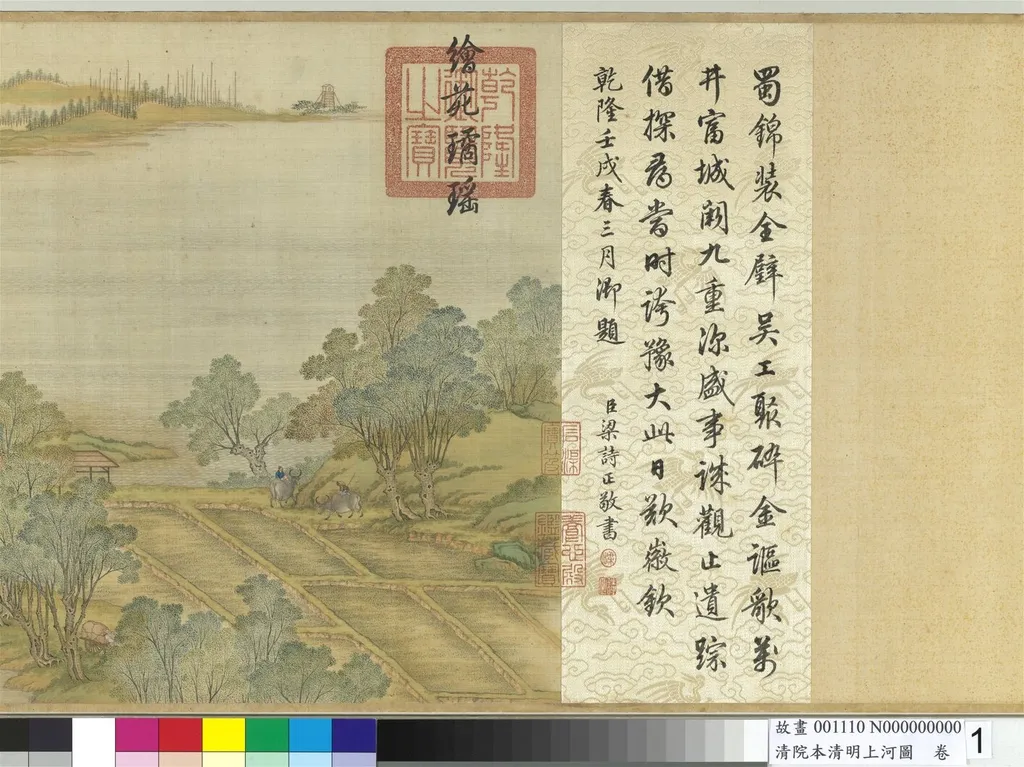 蜀錦装全璧吴工聚碎金謳歌萬
井富城闕九重深盛事誠觀止遺踪
借探尋當时誇豫大此日歎徽欽
乾隆壬戌春三月御題
臣梁詩正敬書
繪苑璚瑶
乾隆御覽之寶
故畫 001110 N000000000
清院本清明上河圖 卷
1